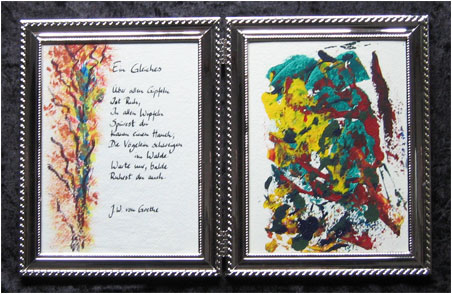 Ein Gleiches
Über allen Gipfeln
Ist Ruh,
In allen Wipfeln
Spürest du
kaum einen Hauch,
Die Vögelein schweigen
im Walde
Warte nur, balde
Ruhest du auch.
J.W. von Goethe